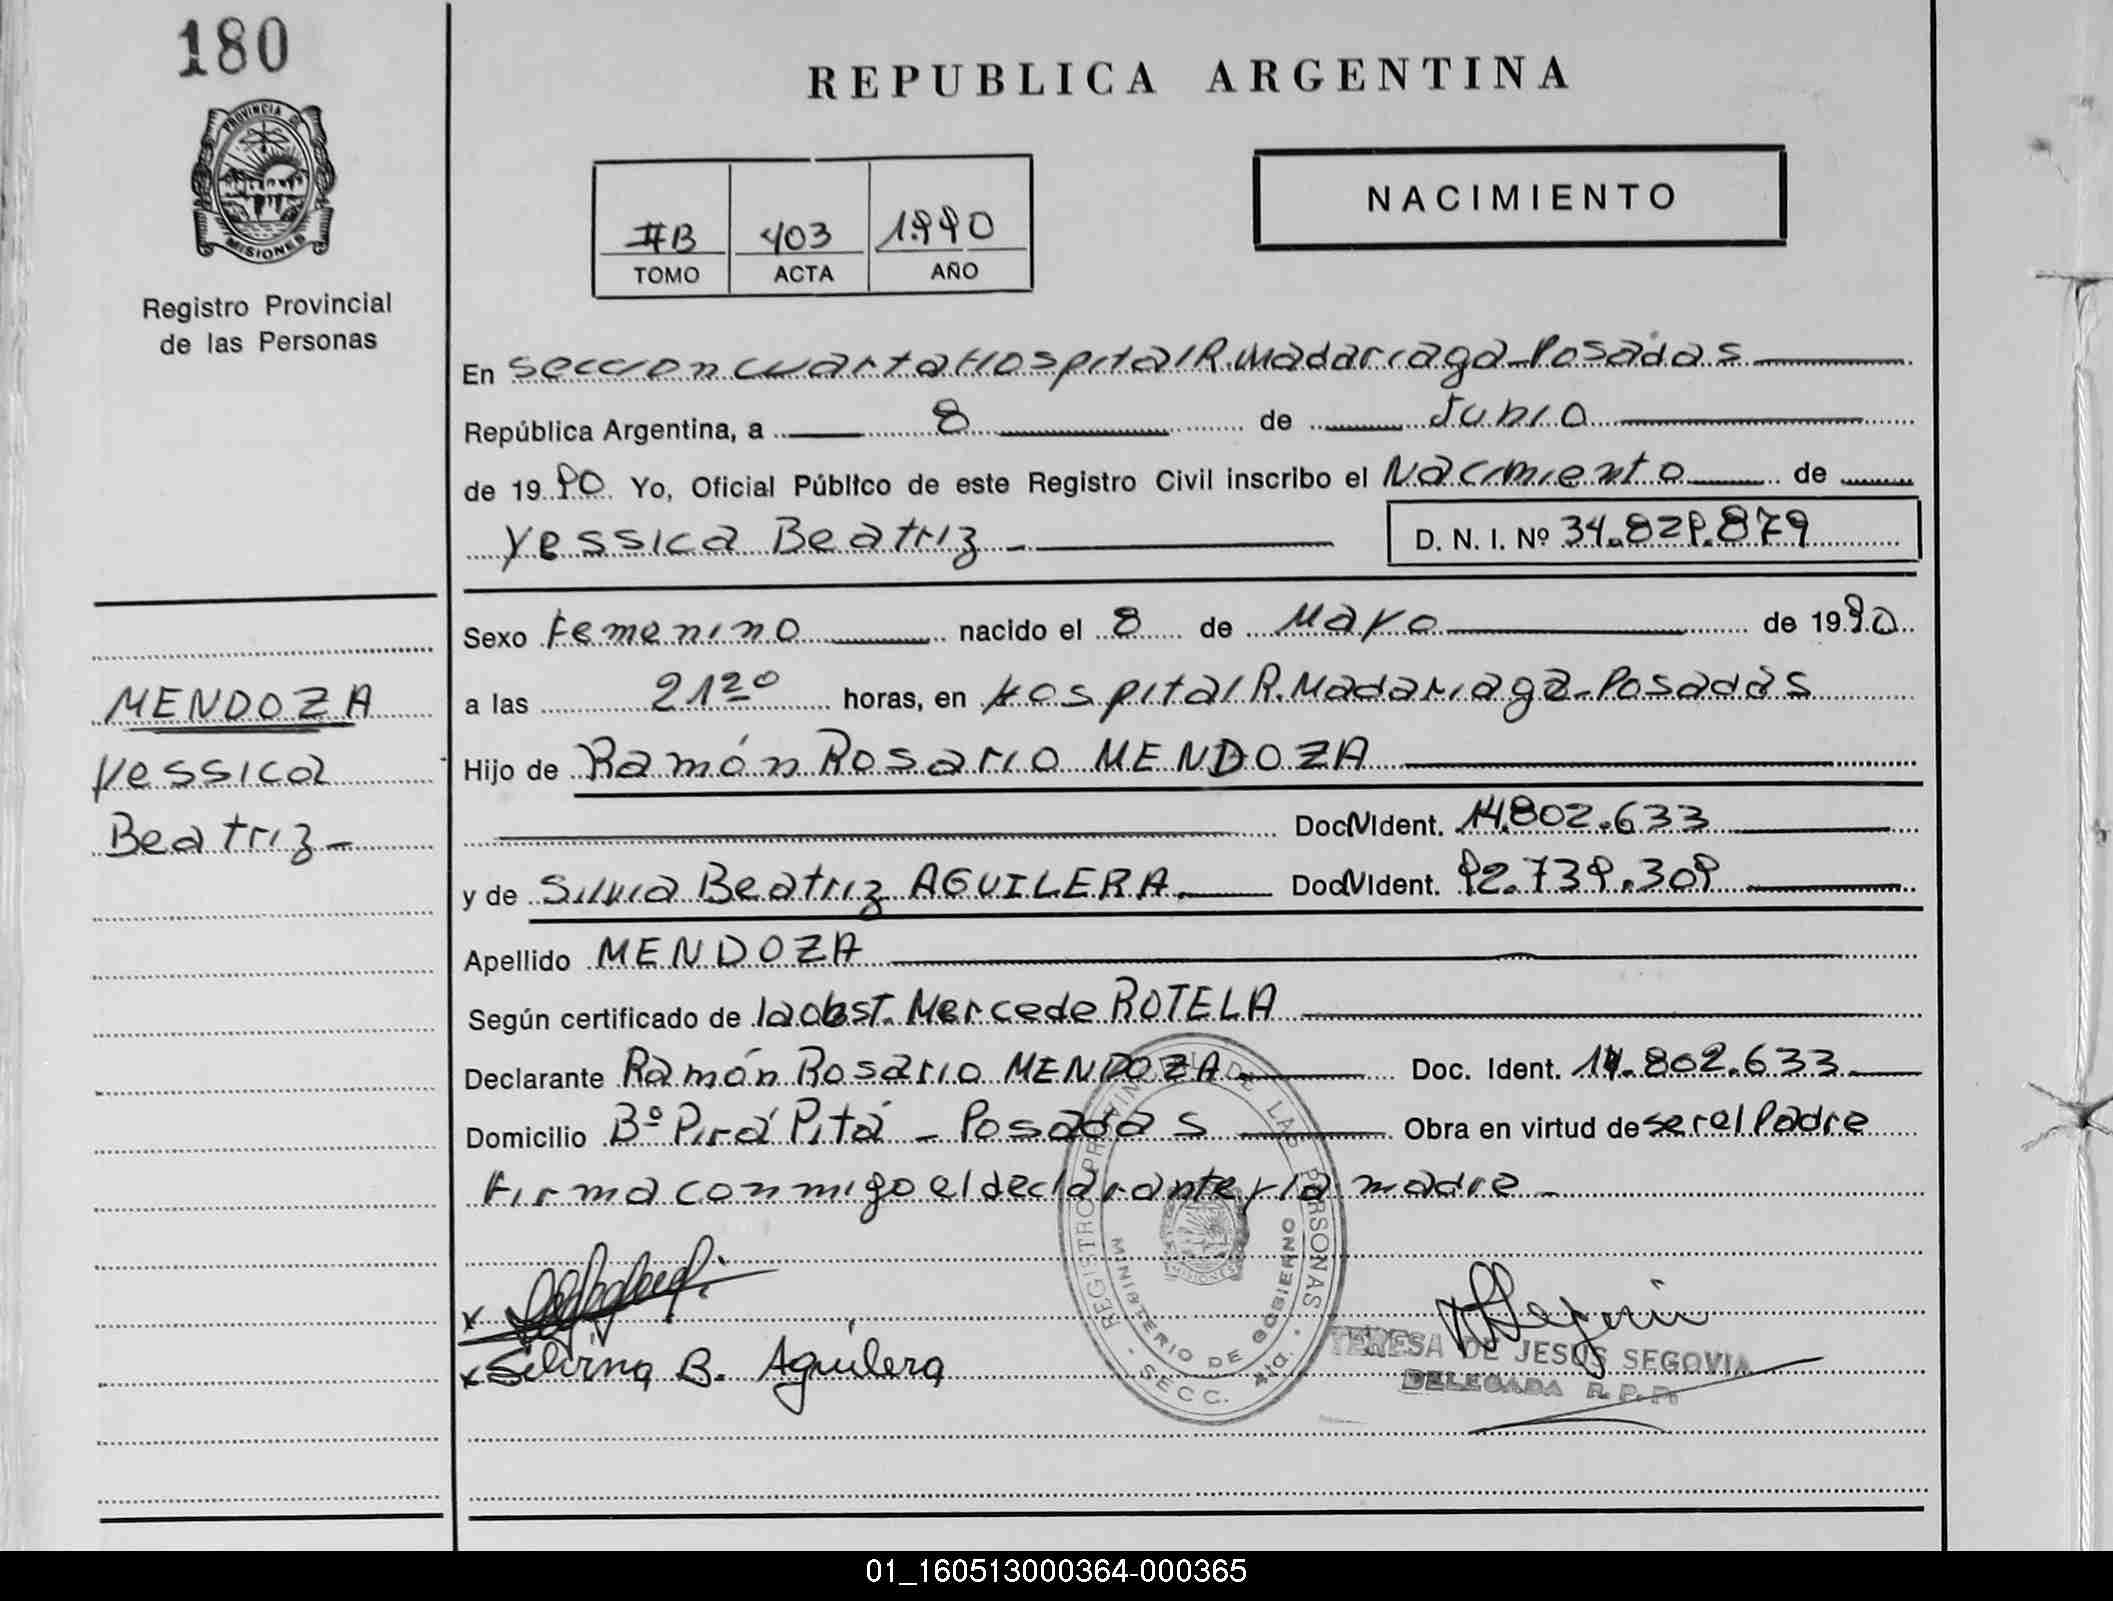 180
PROVINCIA DE
MISIONES
Registro Provincial
de las Personas
REPUBLICA ARGENTINA
NACIMIENTO
#B 403 1990
TOMO ACTA AÑO
En Seccion cuarta Hospital R. Madariaga - Posadas
República Argentina, a 8 de Junio
de 1990 Yo, Oficial Público de este Registro Civil inscribo el Nacimiento de
Yessica Beatriz - D. N. I. Nº 34.829.879
Sexo Femenino nacido el 8 de Mayo de 1990
a las 21 20 horas, en Hospital R. Madariaga - Posadas
MENDOZA
Yessica
Beatriz -
Hijo de Ramón Rosario MENDOZA
Doc N Ident. 14.802.633
y de Silvia Beatriz AGUILERA. Doc N Ident. 92.739.309
Apellido MENDOZA
Según certificado de la obst. Mercede ROTELA
Declarante Ramón Rosario MENDOZA - Doc. Ident. 14.802.633
Domicilio Bº Pirá Pitá - Posadas Obra en virtud de ser el Padre
Firma conmigo el declarante y la madre -
REGISTRO PROVINCIAL DE LAS PERSONAS
MINISTERIO DE GOBIERNO
MISIONES
- SECC. 4ta. -
x
x Silvina B. Aguilera
TERESA DE JESUS SEGOVIA
DELEGADA R. P. P.
01_160513000364-000365